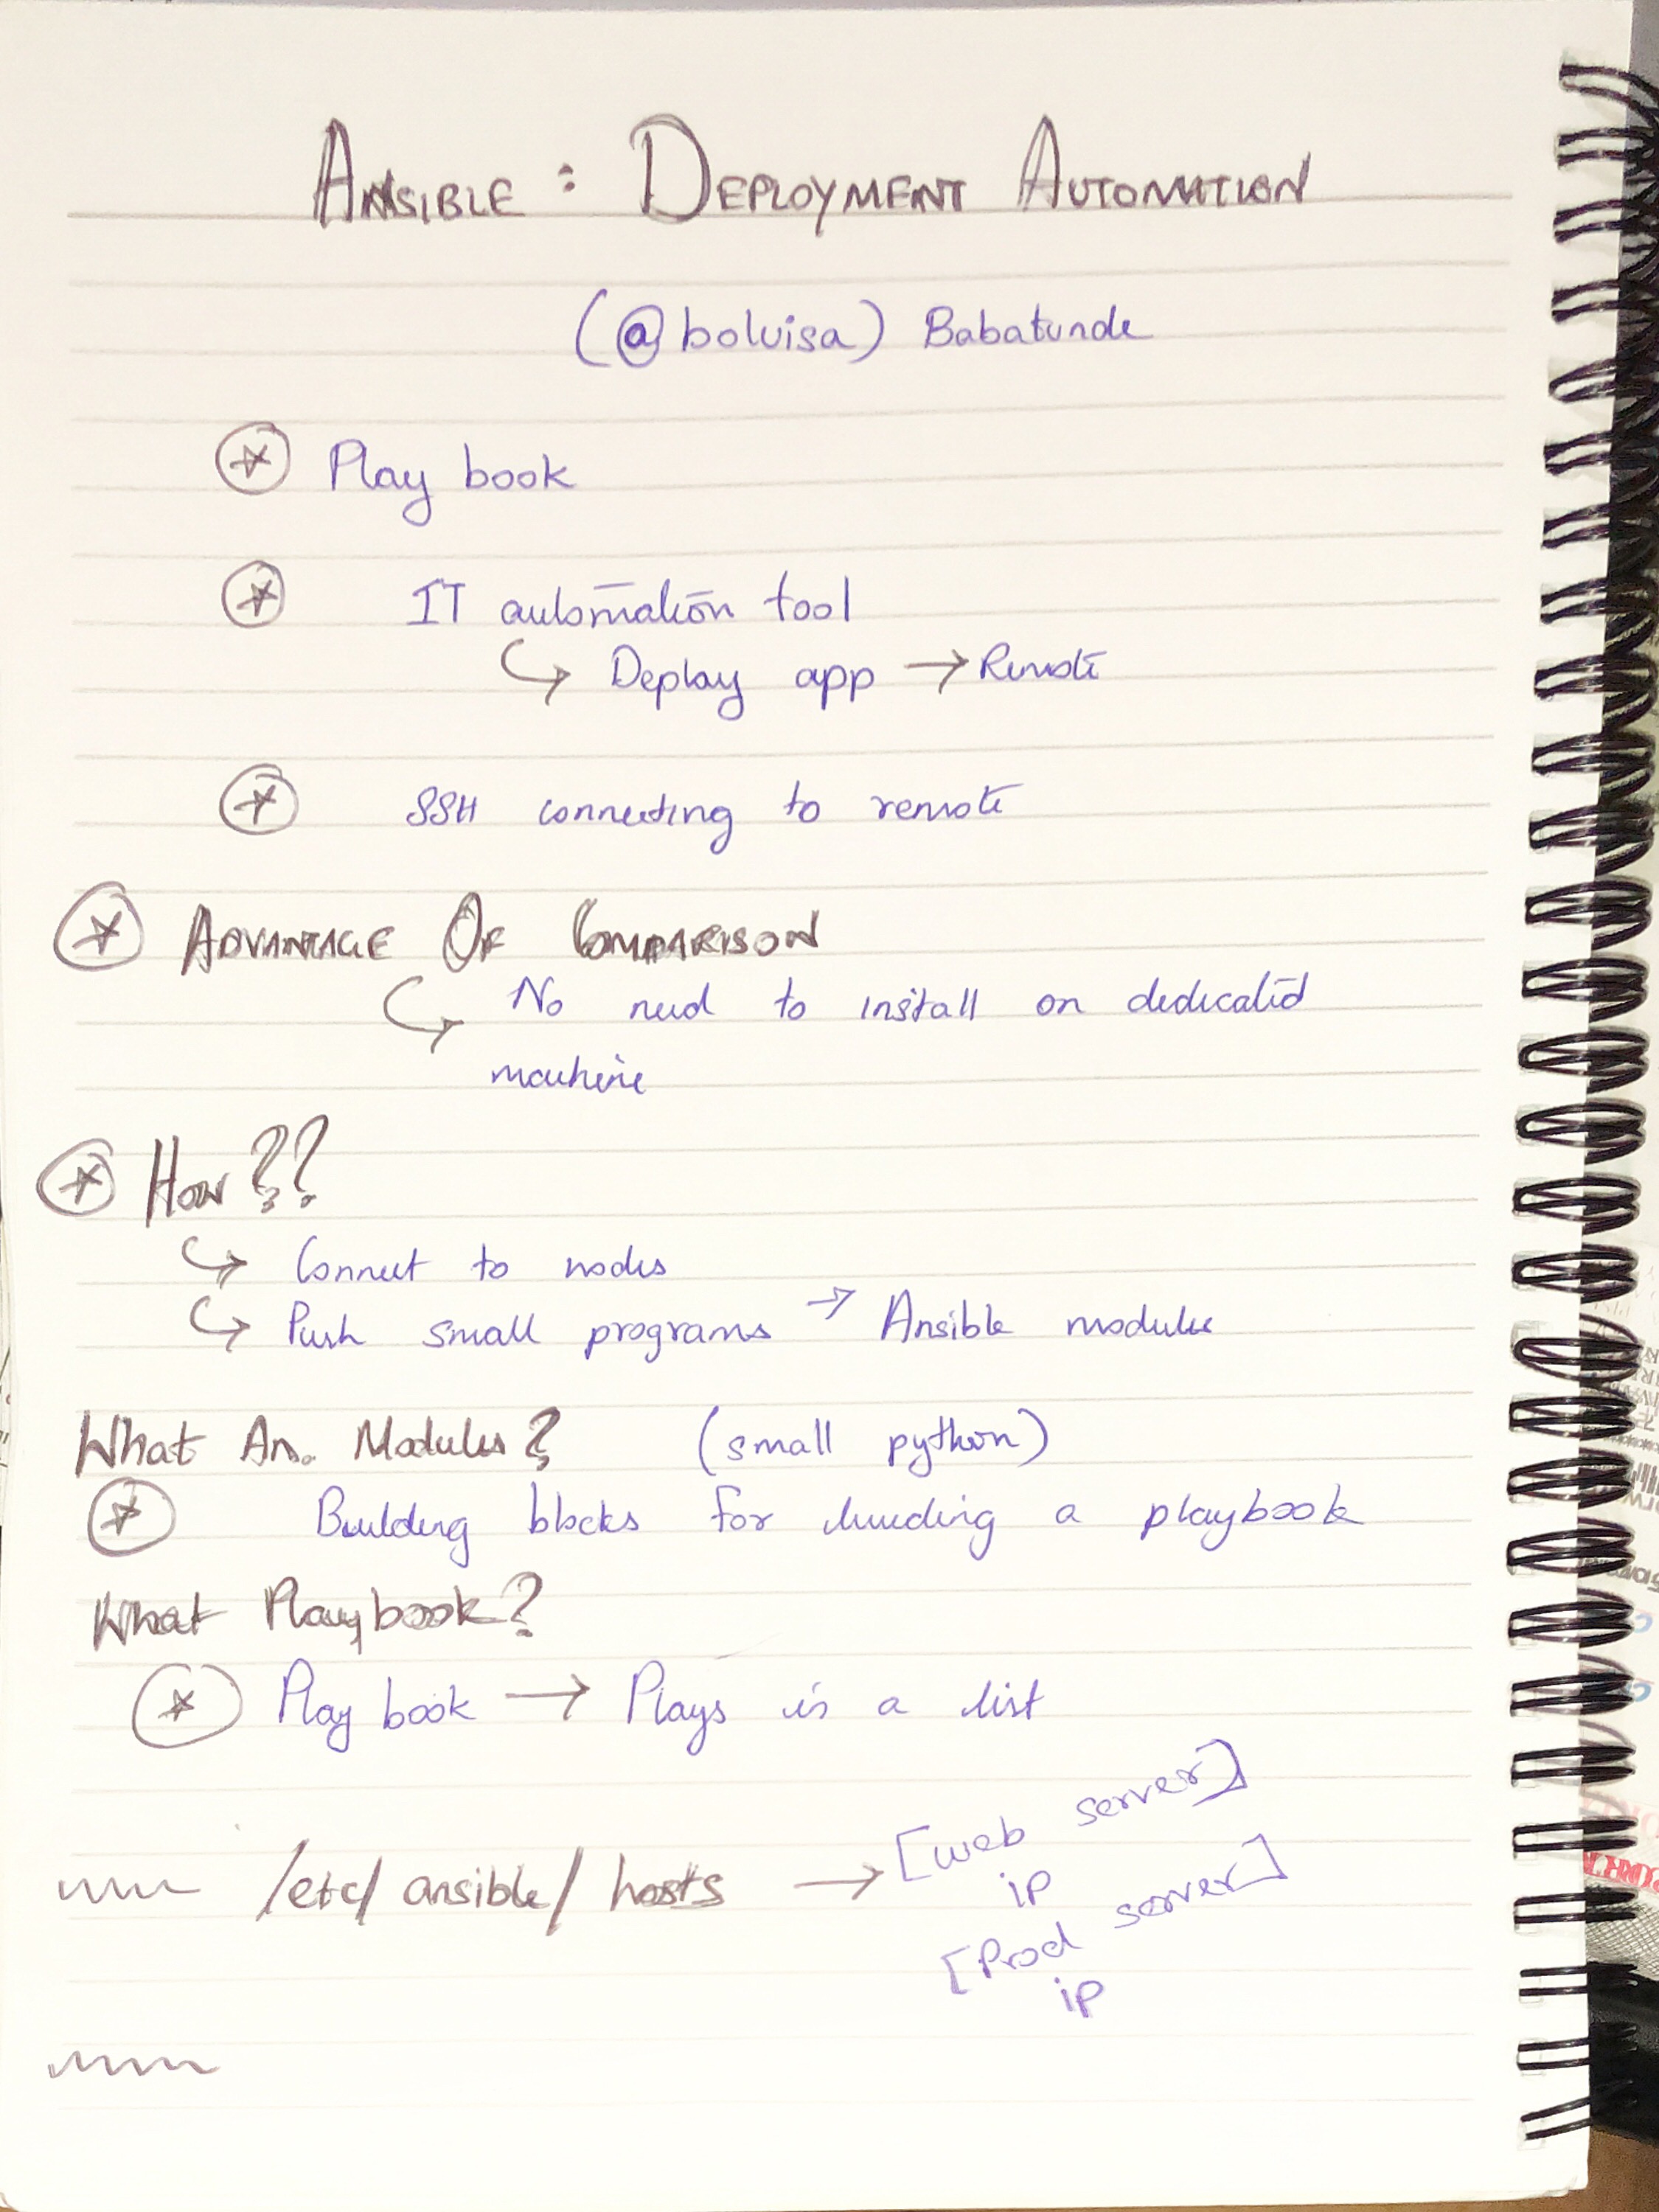 ANSIBLE : DEPLOYMENT AUTOMATION
(@boluisa) Babatunde
Play book
IT automation tool
↳ Deploy app → Remote
SSH connecting to remote
ADVANTAGE OF COMPARISON
↳ No need to install on dedicated
machine
HOW ??
↳ Connect to nodes
↳ Push small programs → Ansible modules
What An. Modules? (small python)
Building blocks for a playbook
What Playbook?
Play book → Plays is a list
/etc/ ansible/ hosts → [web server]
ip
[Prod server]
ip